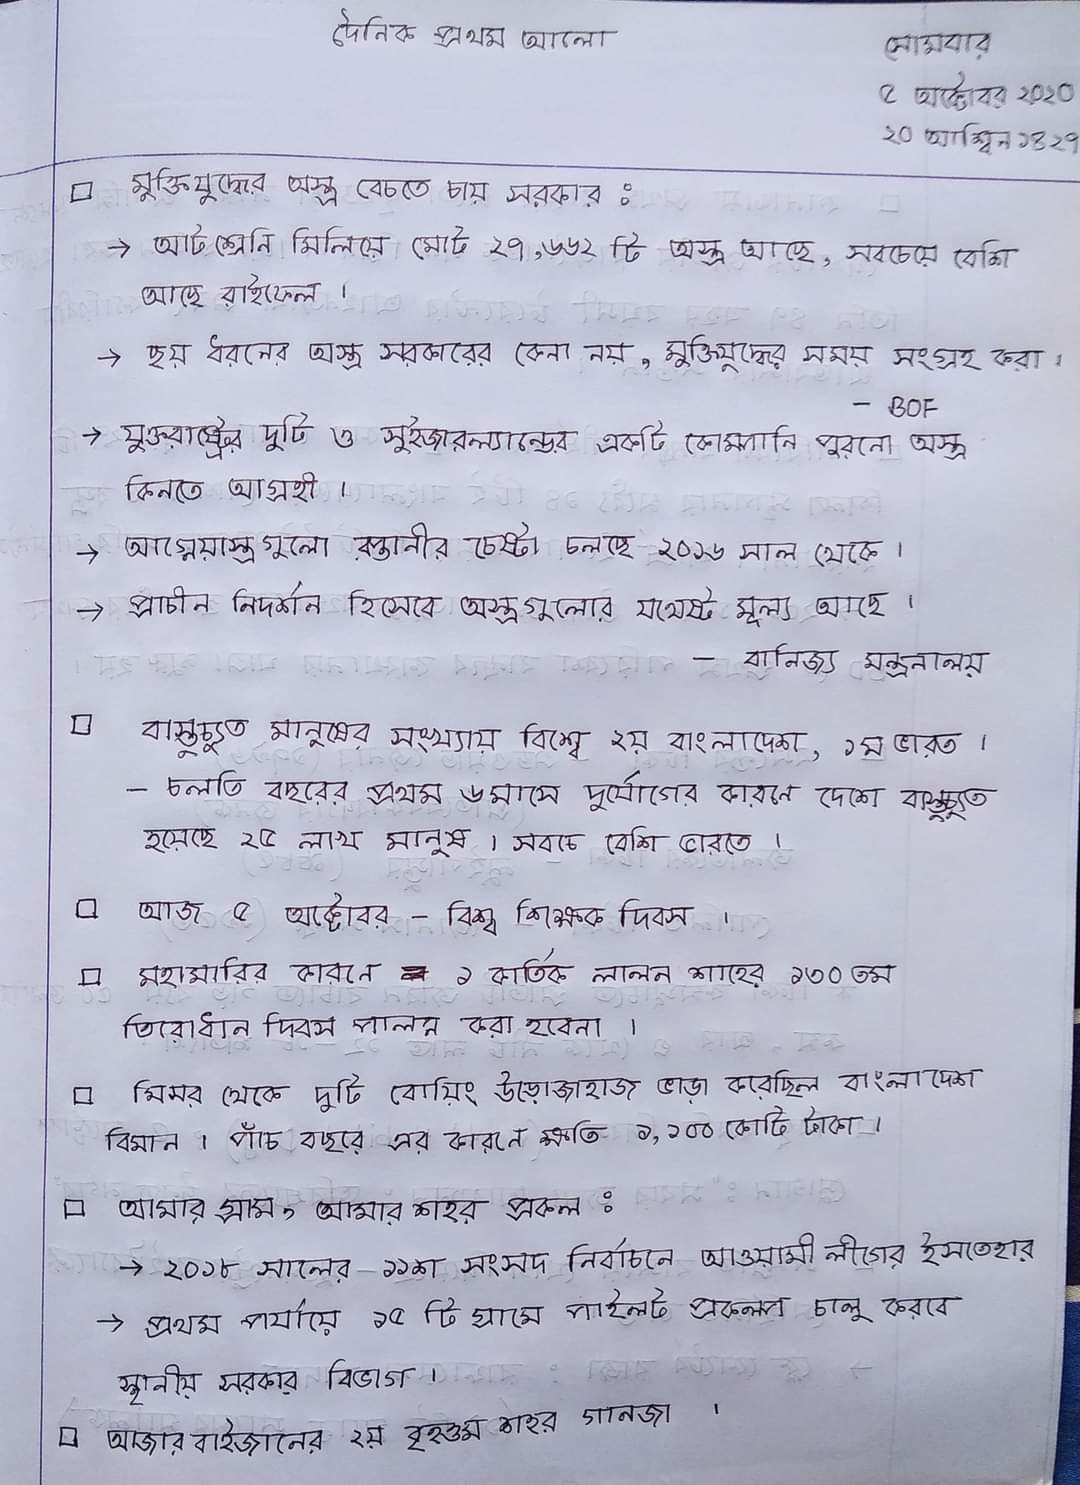 দৈনিক প্রথম আলো
সোমবার
৫ অক্টোবর ২০২০
২০ আশ্বিন ১৪২৭
□ মুক্তিযুদ্ধের অস্ত্র বেচতে চায় সরকার ঃ
→ আটশ্রেনি মিলিয়ে মোট ২৭,৬৬২ টি অস্ত্র আছে, সবচেয়ে বেশি
আছে রাইফেল ।
→ ছয় ধরনের অস্ত্র সরকারের কেনা নয়, মুক্তিযুদ্ধের সময় সংগ্রহ করা ।
– BOF
→ যুক্তরাষ্ট্রের দুটি ও সুইজারল্যান্ডের একটি কোম্পানি পুরনো অস্ত্র
কিনতে আগ্রহী ।
→ আগ্নেয়াস্ত্রগুলো রপ্তানীর চেষ্টা চলছে ২০১৬ সাল থেকে ।
→ প্রাচীন নিদর্শন হিসেবে অস্ত্রগুলোর যথেষ্ট মূল্য আছে ।
– বানিজ্য মন্ত্রনালয়
□ বাস্তুচ্যুত মানুষের সংখ্যায় বিশ্বে ২য় বাংলাদেশ, ১ম ভারত ।
– চলতি বছরের প্রথম ৬মাসে দুর্যোগের কারনে দেশে বাস্তুচ্যুত
হয়েছে ২৫ লাখ মানুষ । সবচে বেশি ভারতে ।
□ আজ ৫ অক্টোবর – বিশ্ব শিক্ষক দিবস ।
□ মহামারির কারনে ১ কার্তিক লালন শাহের ১৩০তম
তিরোধান দিবস পালন করা হবেনা ।
□ মিসর থেকে দুটি বোয়িং উড়োজাহাজ ভাড়া করেছিল বাংলাদেশ
বিমান । পাঁচ বছরে এর কারনে ক্ষতি ১,১০০ কোটি টাকা ।
□ আমার গ্রাম, আমার শহর প্রকল্প ঃ
→ ২০১৮ সালের ১১শ সংসদ নির্বাচনে আওয়ামী লীগের ইসতেহার
→ প্রথম পর্যায়ে ১৫ টি গ্রামে পাইলট প্রকল্প চালু করবে
স্থানীয় সরকার বিভাগ ।
□ আজারবাইজানের ২য় বৃহত্তম শহর গানজা ।